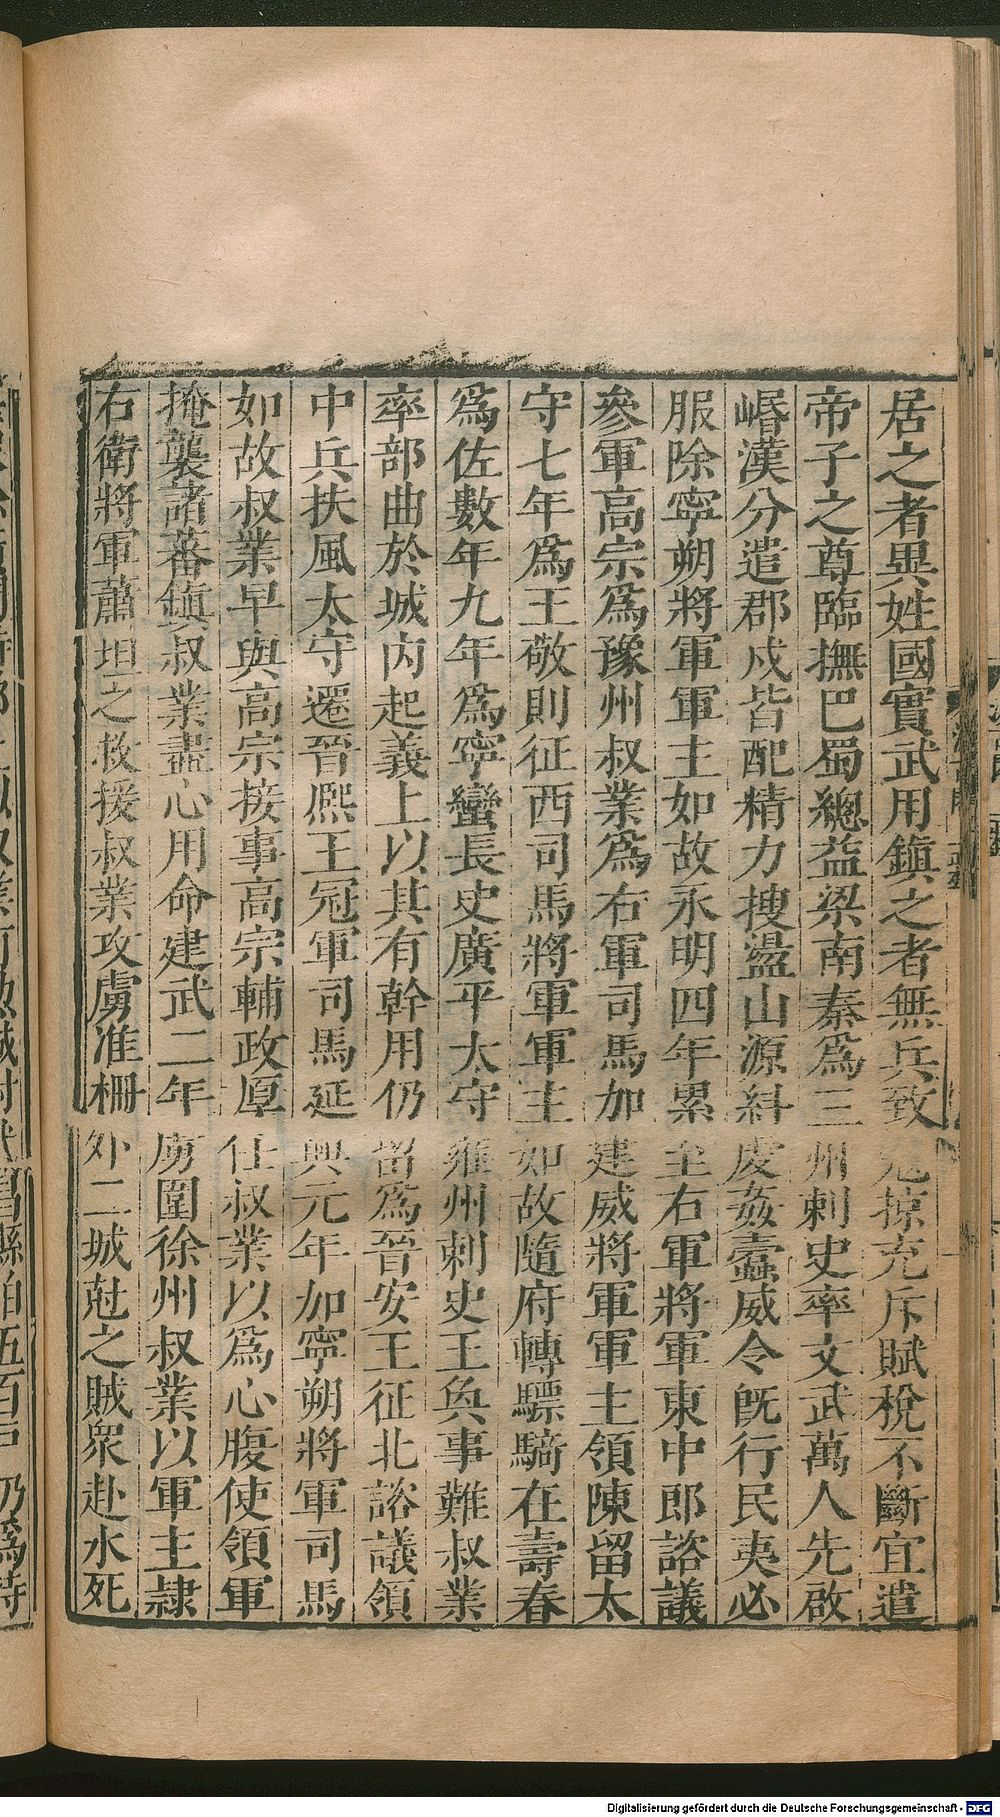 居之者異姓國實武用鎮之者無兵致寇掠充斥賦稅不斷宜遣
帝子之尊臨撫巴蜀總益梁南秦爲三州刺史率文武萬人先啟
㟭漢分遣郡戍皆配精力搜盪山源糾虔姦蠹威令旣行民夷必
服除寧朔將軍軍主如故永明四年累至右軍將軍東中郎諮議
參軍高宗爲豫州叔業爲右軍司馬加建威將軍軍主領陳留太
守七年爲王敬則征西司馬將軍軍主如故隨府轉驃騎在壽春
爲佐數年九年爲寧蠻長史廣平太守雍州刺史王奐事難叔業
率部曲於城內起義上以其有幹用仍留爲晉安王征北諮議領
中兵扶風太守遷晉熙王冠軍司馬延興元年加寧朔將軍司馬
如故叔業早與高宗接事高宗輔政厚任叔業以爲心腹使領軍
掩襲諸蕃鎮叔業盡心用命建武二年虜圍徐州叔業以軍主隷
右衛將軍蕭坦之救援叔業攻虜淮柵外二城尅之賊衆赴水死
Digitalisierung gefördert durch die Deutsche Forschungsgemeinschaft - DFG